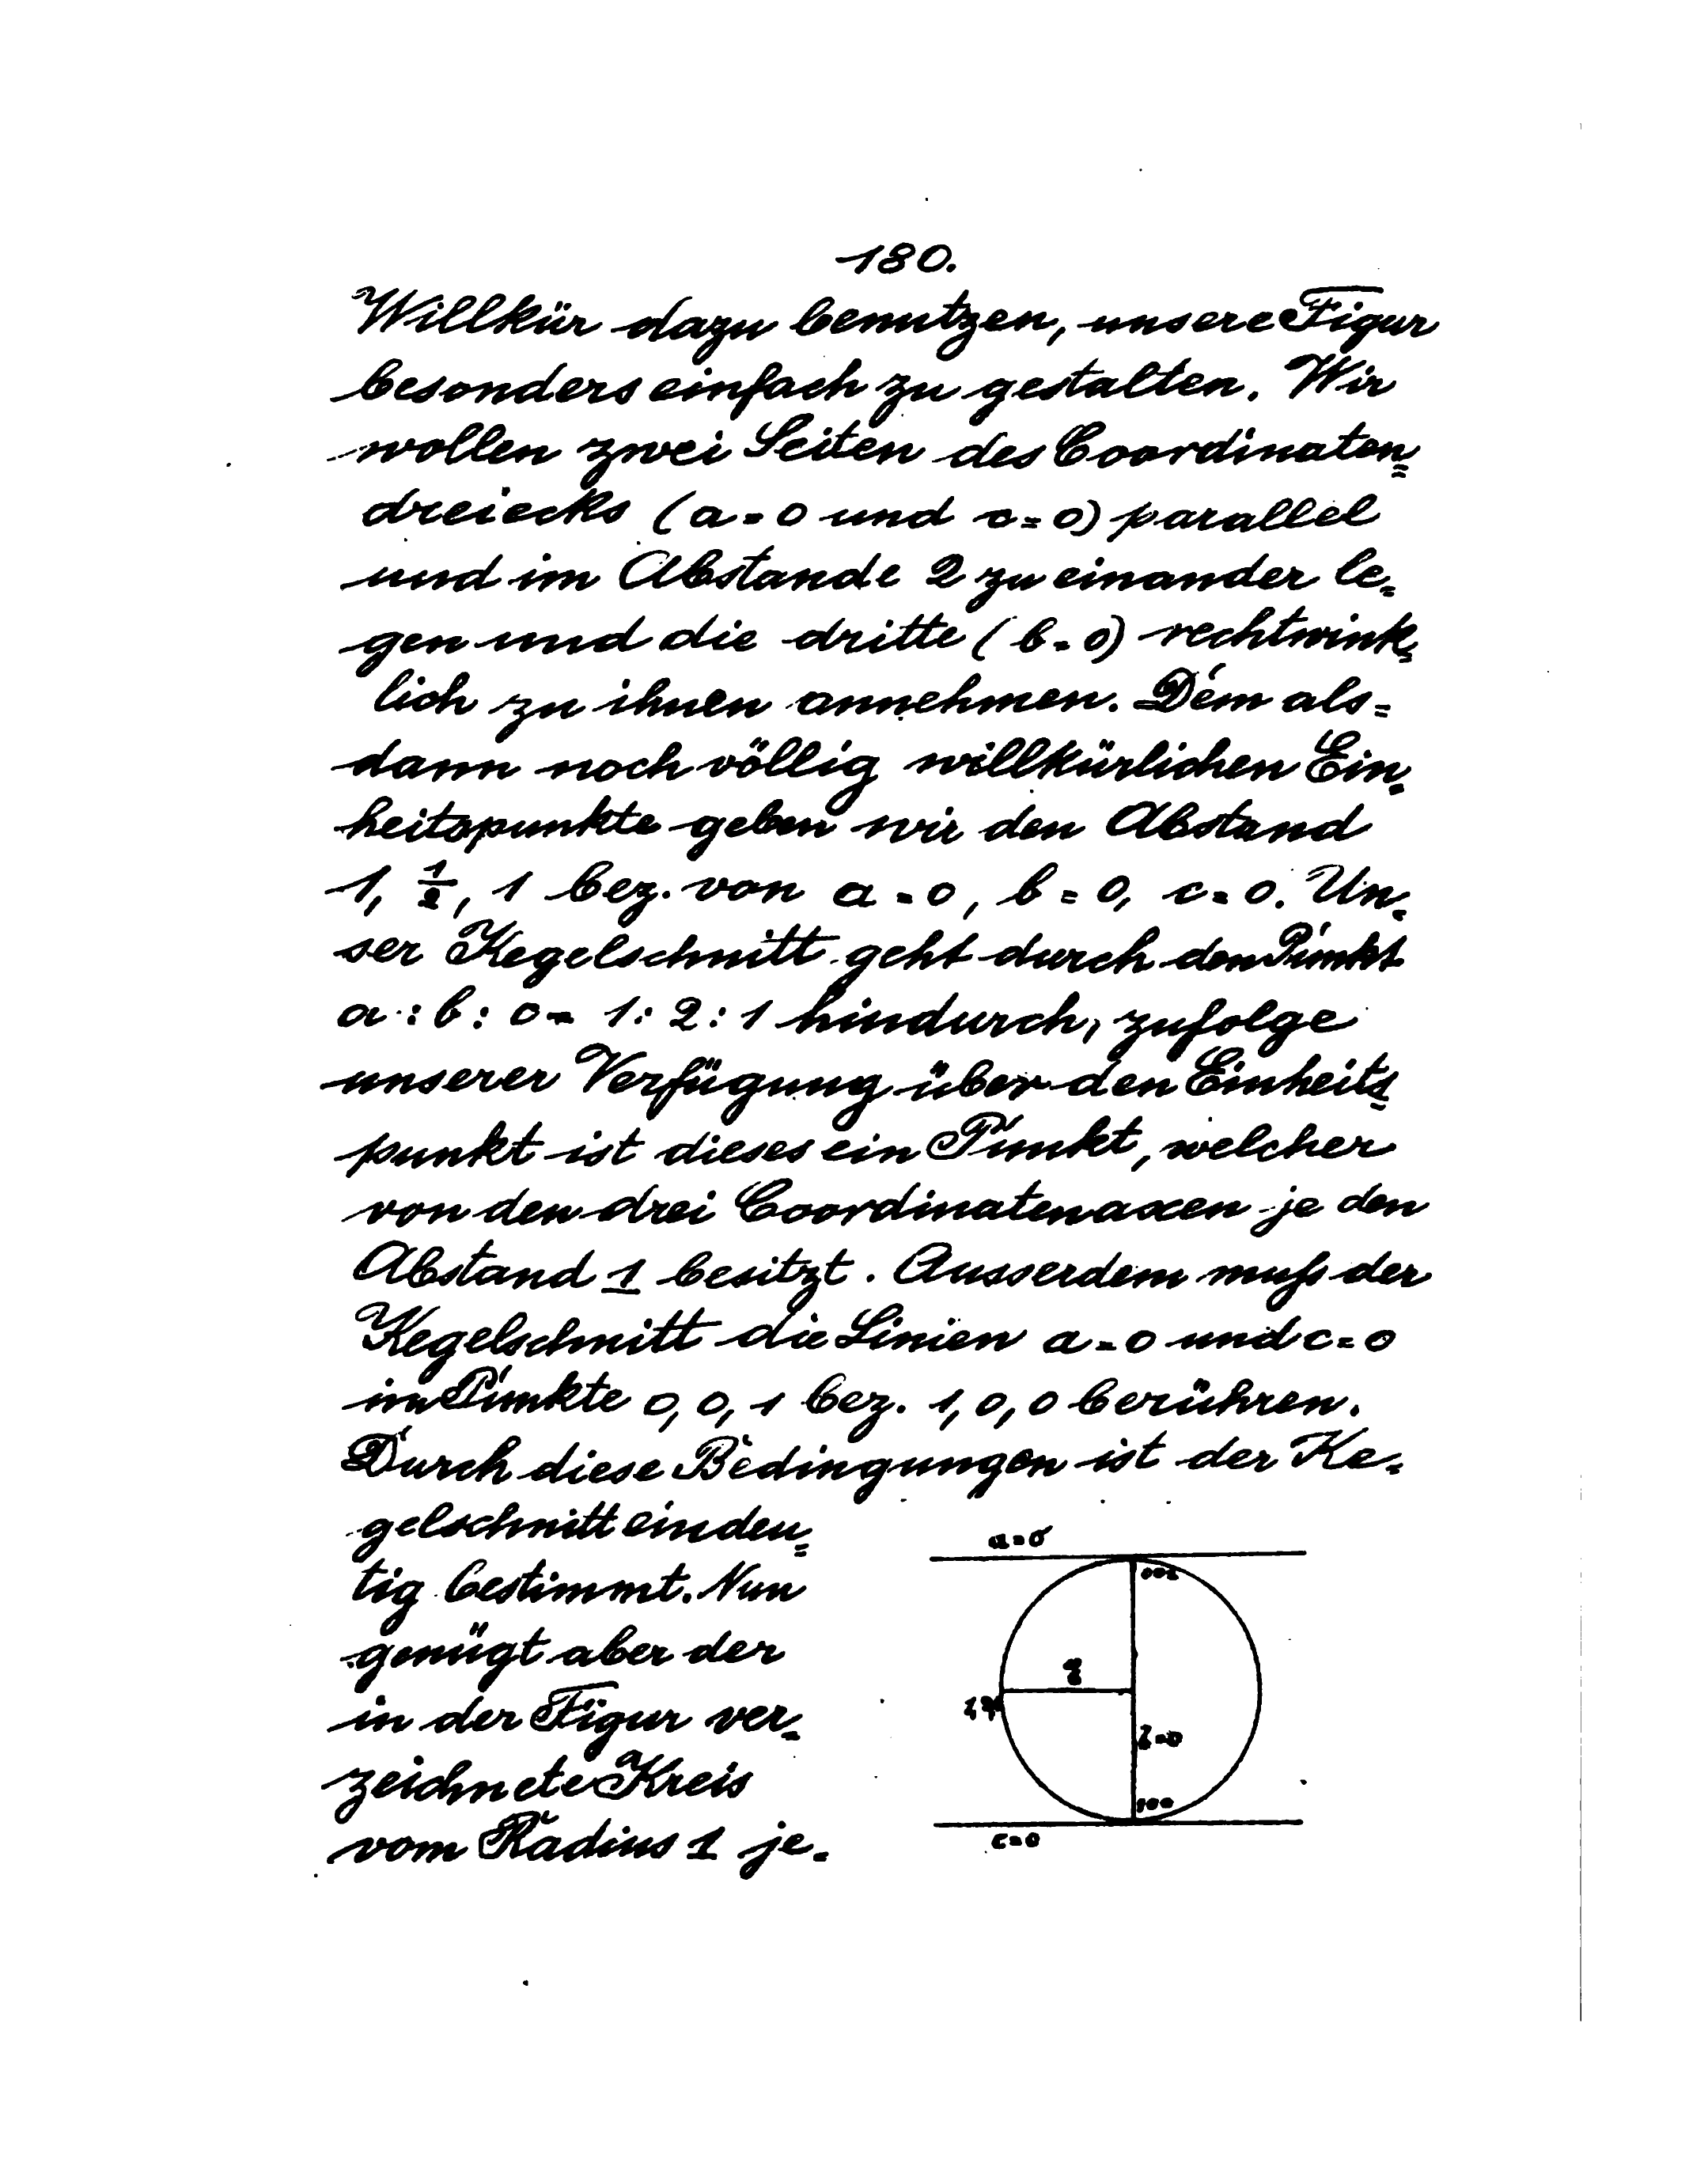 180.
Willkür dazu benutzen, unsere Figur
besonders einfach zu gestalten. Wir
wollen zwei Seiten des Coordinaten=
dreiecks (a=0 und c=0) parallel
und im Abstande 2 zu einander le=
gen und die dritte (b=0) rechtwink=
lich zu ihnen annehmen. Dem als=
dann noch völlig willkürlichen Ein=
heitspunkte geben wir den Abstand
1, 1/2, 1 bez. von a=0, b=0, c=0. Un=
ser Kegelschnitt geht durch den Punkt
a:b:c = 1:2:1 hindurch, zufolge
unserer Verfügung über den Einheits=
punkt ist dieses ein Punkt, welcher
von den drei Coordinatenaxen je den
Abstand 1 besitzt. Ausserdem muß der
Kegelschnitt die Linien a=0 und c=0
im Punkte 0,0,1 bez. 1,0,0 berühren.
Durch diese Bedingungen ist der Ke=
gelschnitt eindeu=
tig bestimmt. Nun
genügt aber der
in der Figur ver=
zeichnete Kreis
vom Radius 1 je=
a=0
c=0